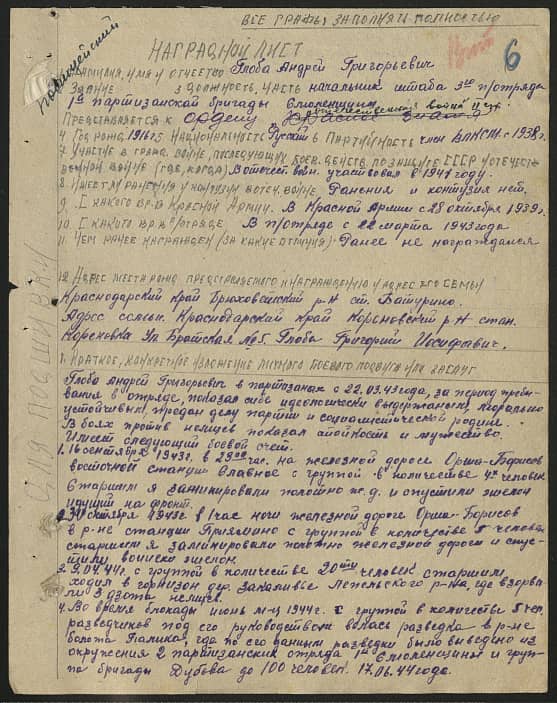 ВСЕ ГРАФЫ ЗАПОЛНЯТЬ ПОЛНОСТЬЮ
6
НАГРАДНОЙ ЛИСТ
ФАМИЛИЯ, ИМЯ И ОТЧЕСТВО Глоба Андрей Григорьевич
ЗВАНИЕ 3 ДОЛЖНОСТЬ, ЧАСТЬ начальник штаба 3го п/отряда
1ой партизанской бригады Смоленщины
ПРЕДСТАВЛЯЕТСЯ К ордену Отечественной войны II ст.
4 ГОД РОЖД. 1916 г. 5 НАЦИОНАЛЬНОСТЬ Русский 6 ПАРТИЙНОСТЬ член ВЛКСМ с 1938 г.
7 УЧАСТИЕ В ГРАЖД. ВОЙНЕ, ПОСЛЕДУЮЩИХ БОЕВ. ДЕЙСТВ. ПО ЗАЩИТЕ СССР И ОТЕЧЕСТ-
ВЕННОЙ ВОЙНЕ (ГДЕ, КОГДА) В отечест. войн. участвовал в 1941 году.
8 ИМЕЕТ ЛИ РАНЕНИЯ И КОНТУЗИИ В ОТЕЧ. ВОЙНЕ. Ранения и контузия нет.
9 С КАКОГО ВР. В КРАСНОЙ АРМИИ. В Красной Армии с 28 октября 1939 г.
10 С КАКОГО ВР. В П/ОТРЯДЕ. В п/отряде с 22 марта 1943 года
11 ЧЕМ РАНЕЕ НАГРАЖДЕН (ЗА КАКИЕ ОТЛИЧИЯ) Ранее не награждался
12 АДРЕС МЕСТА РОЖД. ПРЕДСТАВЛЯЕМОГО К НАГРАЖДЕНИЮ И АДРЕС ЕГО СЕМЬИ
Краснодарский край Брюховетский р-н ст. Батурино.
Адрес семьи. Краснодарский край Кореновский р-н стан.
Кореновка Ул Братская № 5. Глоба Григорий Иосифович.
1. КРАТКОЕ, КОНКРЕТНОЕ ИЗЛОЖЕНИЕ ЛИЧНОГО БОЕВОГО ПОДВИГА ИЛИ ЗАСЛУГ
Глоба Андрей Григорьевич в партизанах с 22.03.43 года, за период пребы-
вания в отряде, показал себя идеологически выдержанным, морально
устойчивым, предан делу партии и социалистической родине.
В боях против немцев показал стойкость и мужество.
Имеет следующий боевой счет.
1. 16 сентября 1943 г. в 23 00 час. на железной дороге Орша-Борисов
восточной станции Славное с группой в количестве 4х человек
старшим я заминировали полотно ж.д. и опустили эшелон
идущий на фронт.
октября 1943 г. в 1 час ночи железной дороге Орша-Борисов
в р-не станции Приямино с группой в количестве 5 человек
старшим я заминировали полотно железной дороги и спус-
тили воинск эшелон.
3. 9.04.44 г. с группой в количестве 20ти человек старшим
ходил в гарнизон дер. Лепельского р-на, где взорва
ли 3 дзота немцев.
4. Во время блокады июнь м-ц 1944 г. с группой в количестве 5 чел.
разведчиков под его руководством велась разведка в р-не
болота Палика, где по его данным разведки было выведено из
окружения 2 партизанских отряда 1ой Смоленщины и груп-
па бригады Дубова до 100 человек. 17.06.44 года.